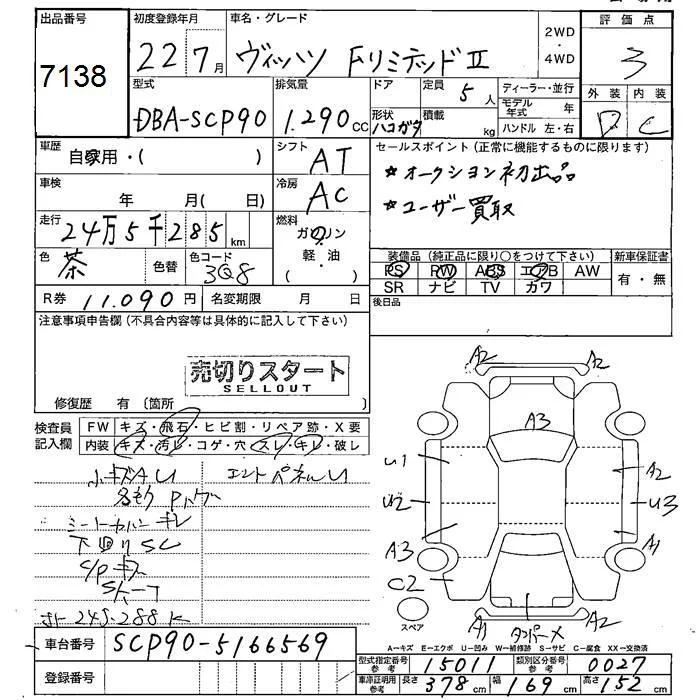 出品番号
7138
初度登録年月
22年7月
車名・グレード
ヴィッツ FリミテッドⅡ
2WD
・
4WD
評価点
3
型式
DBA-SCP90
排気量
1.290cc
ドア
形状
ハコガタ
定員
5人
積載
kg
ディーラー・並行
モデル年式 年
ハンドル 左・右
外装 内装
D C
車歴
自家用・( )
シフト
AT
セールスポイント(正常に機能するものに限ります)
☆オークション初出品
☆ユーザー買取
車検
年 月( 日)
冷房
AC
走行
24万5千285km
燃料
ガソリン
軽・油
色
茶
色替
色コード
3Q8
装備品(純正品に限り○をつけて下さい)
PS PW ABS エアB AW
SR ナビ TV カワ
新車保証書
有・無
R券 11.090円
名変期限 月 日
後日品
注意事項申告欄(不具合内容等は具体的に記入して下さい)
売切りスタート
SELLOUT
修復歴 有(箇所 )
検査員記入欄
FW キズ・飛石・ヒビ割・リペア跡・X要
内装 キズ・汚レ・コゲ・穴・スレ・キレ・破レ
小キズAU
シートカバー キレ
下回りSC
245.288K
A2 A2
A3
U1
A2
U2
U3
A3
A1
C2
A1
A2
スペア
A－キズ E－エクボ U－凹み W－補修跡 S－サビ C－腐食 XX－交換済
車台番号 SCP90-5166569
型式指定番号 参考 15011
類別区分番号 参考 0027
登録番号
車庫証明用 参考 長さ 378cm 幅 169cm 高さ 152cm